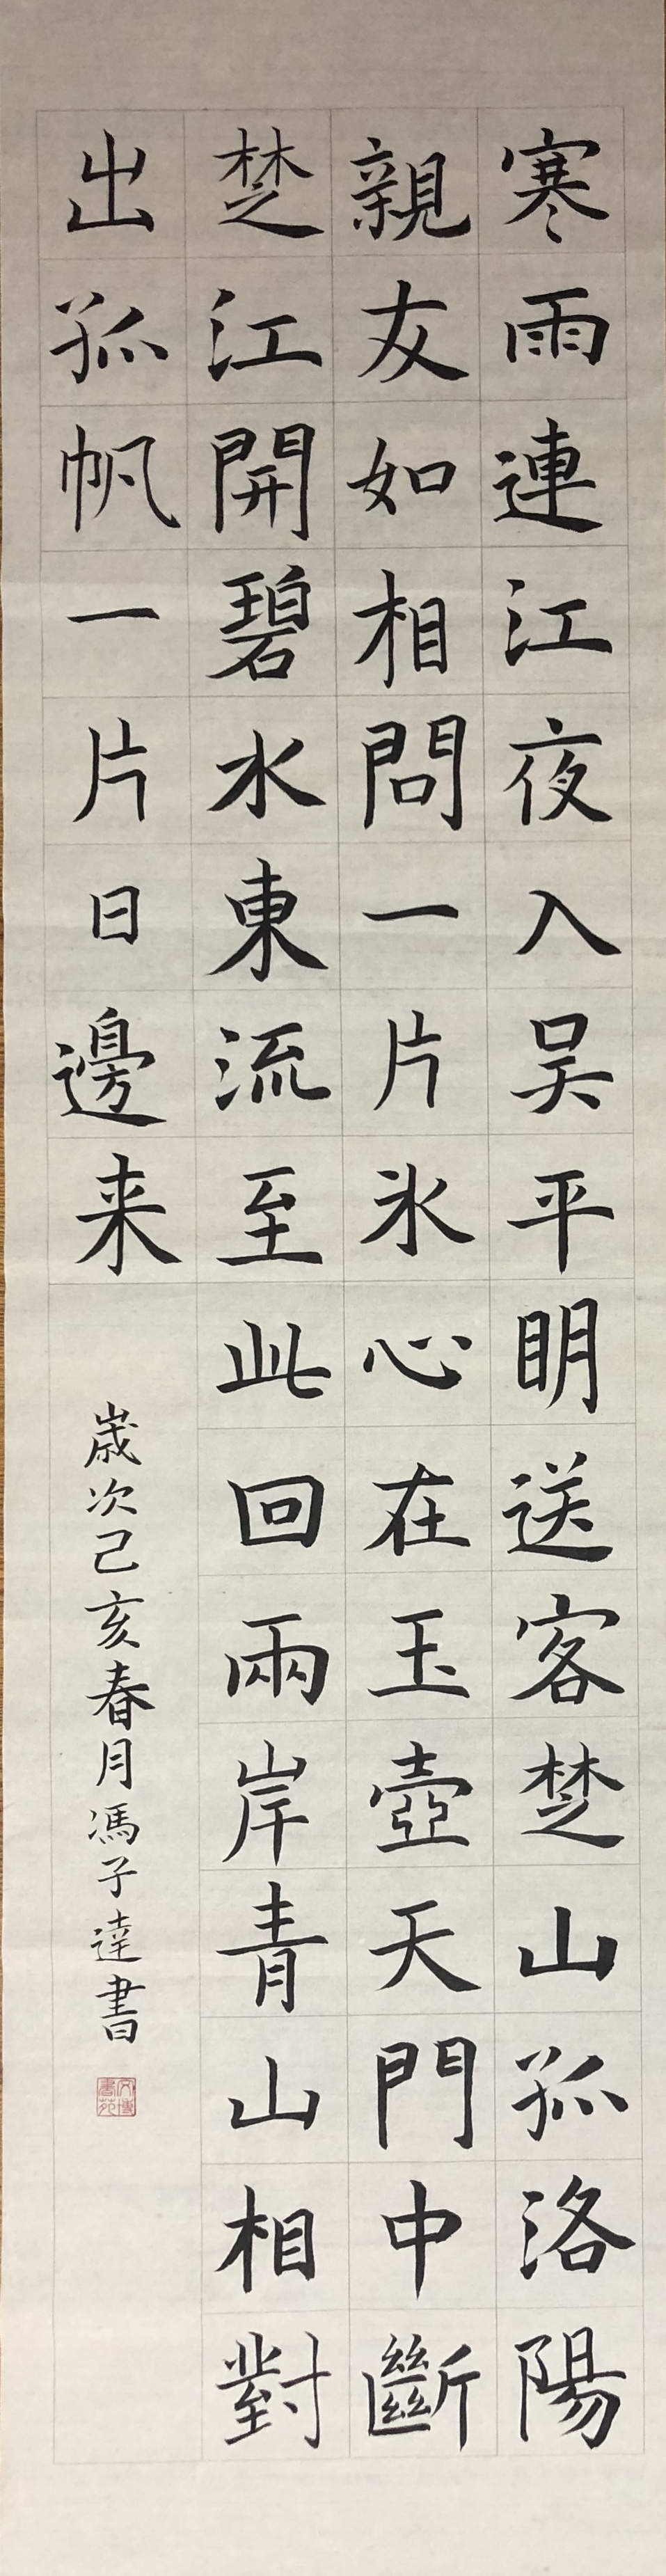 寒雨連江夜入吴平明送客楚山孤洛陽
親友如相問一片氷心在玉壺天門中斷
楚江開碧水東流至此回兩岸青山相對
出孤帆一片日邊来
歲次己亥春月馮子達書
文博書苑